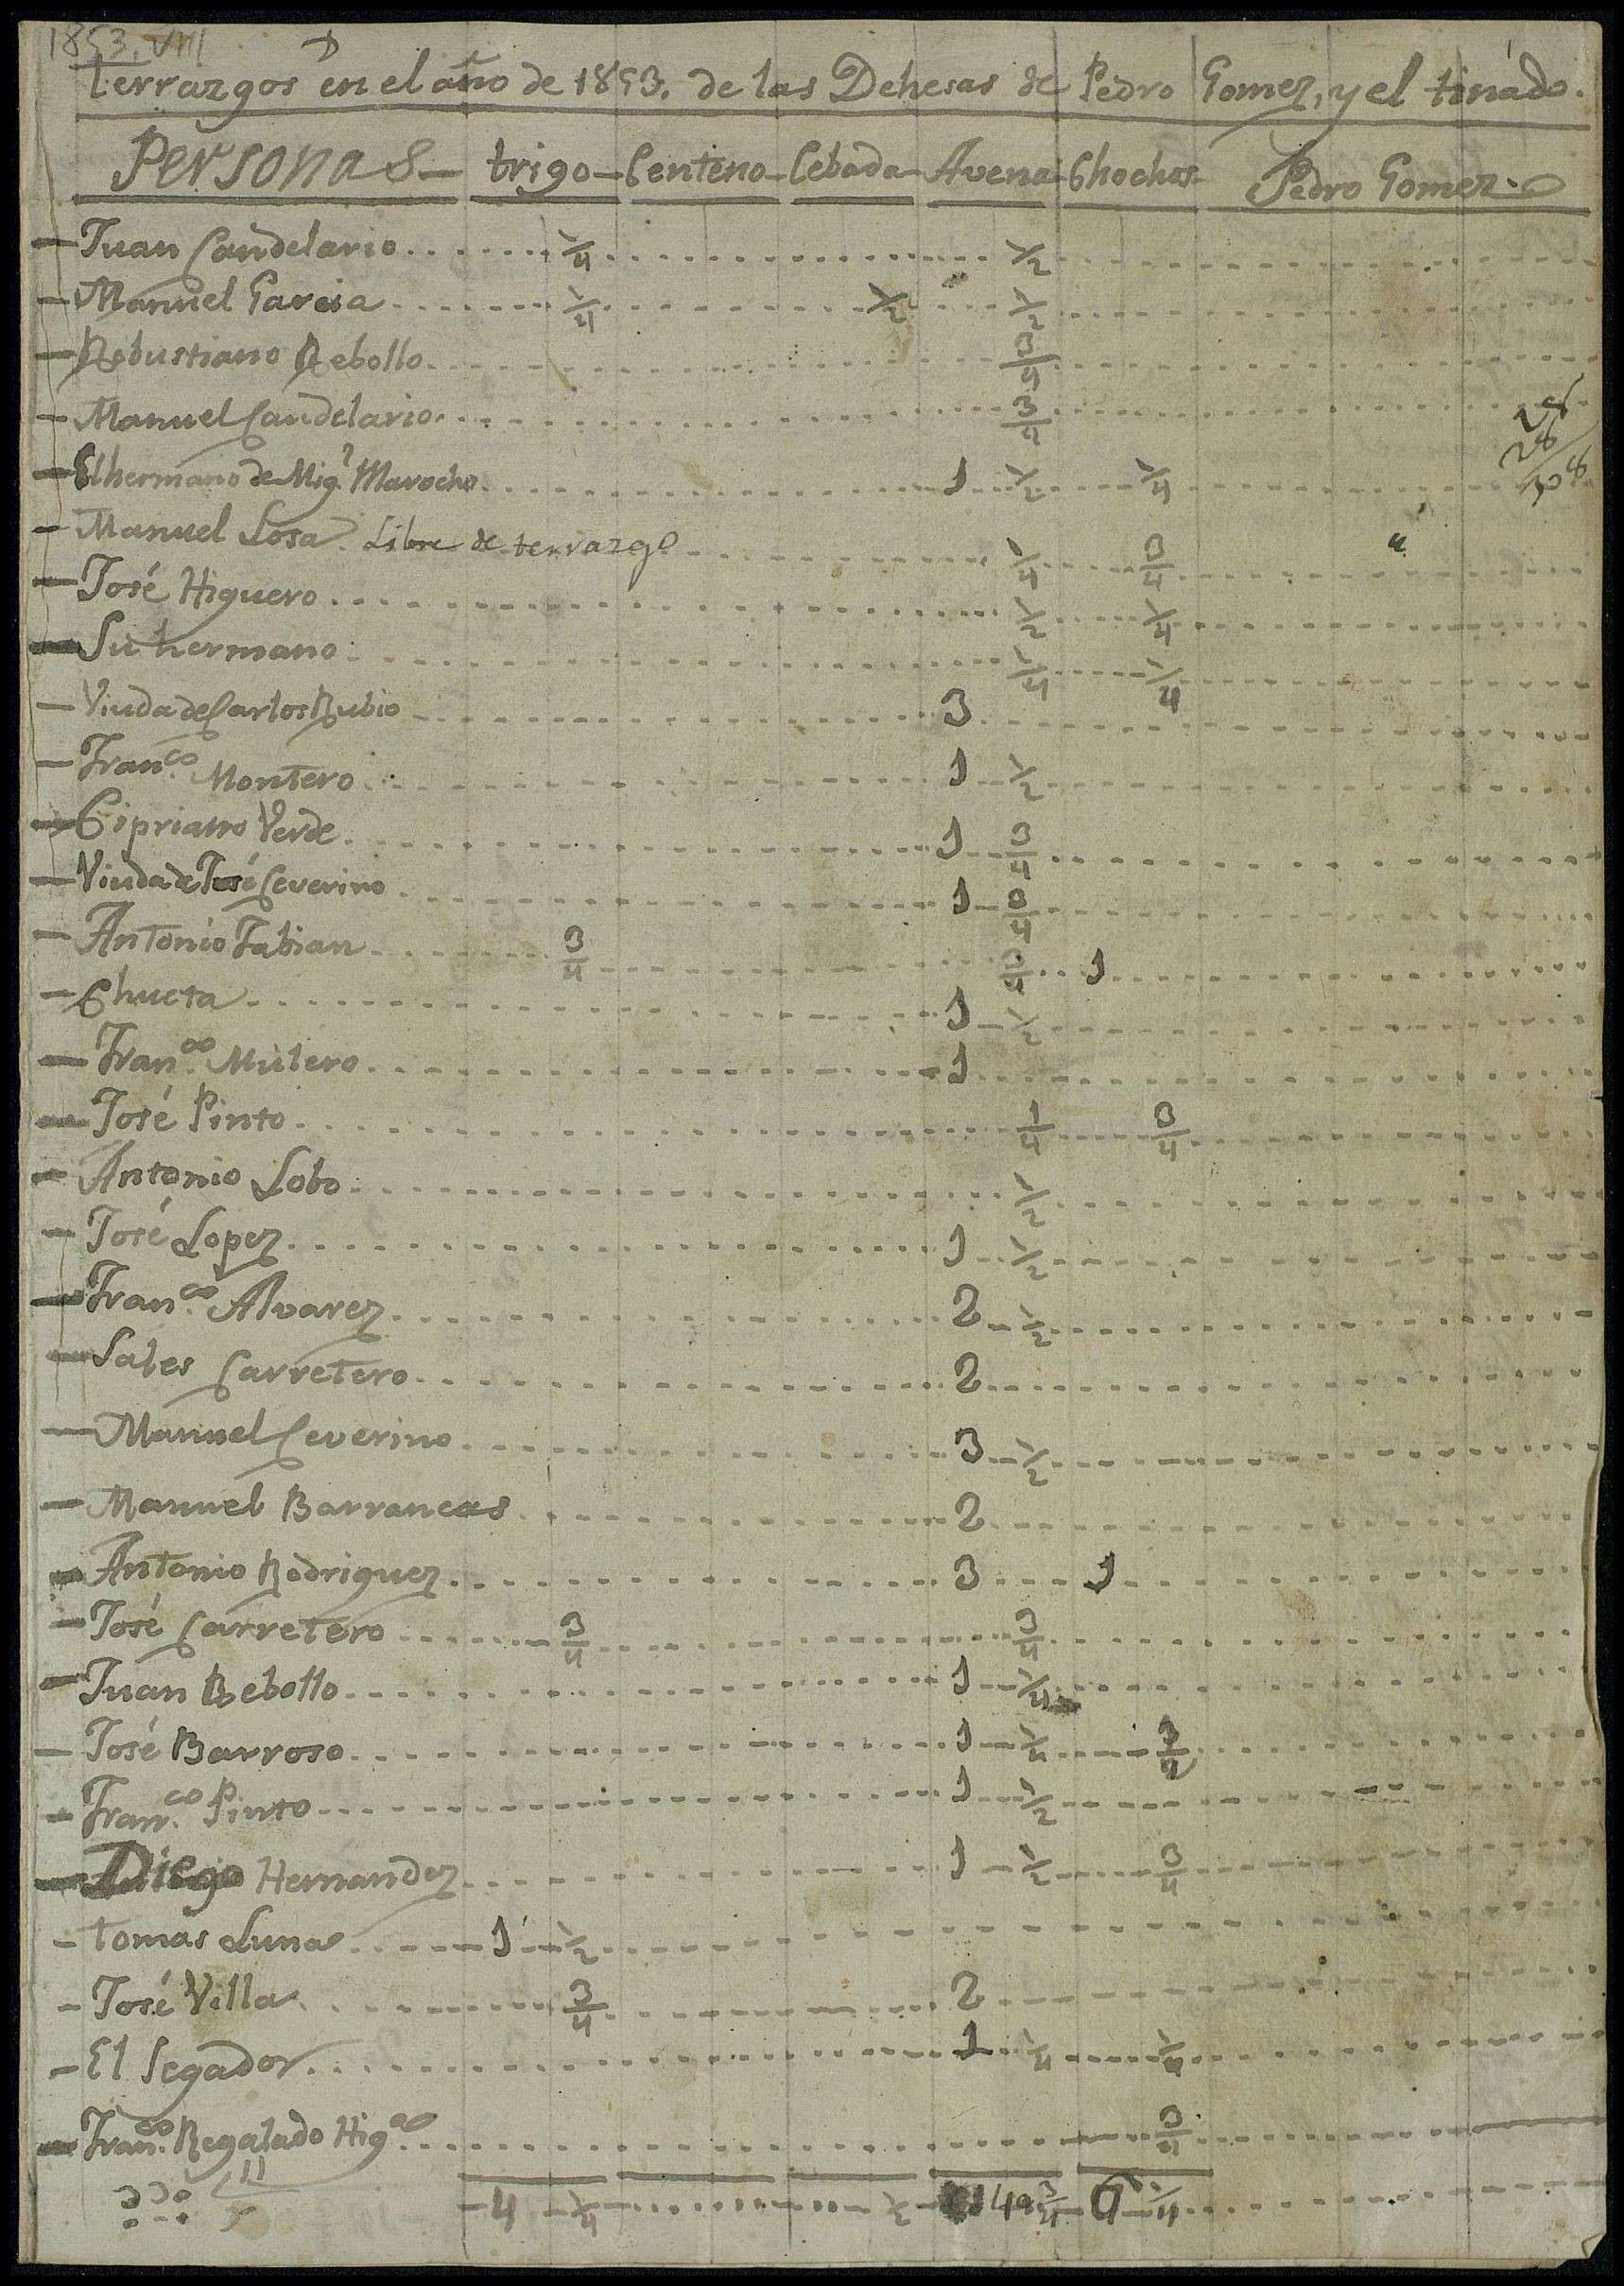 1853. VIII
terrazgos en el año de 1853. de las Dehesas de Pedro Gomez, y el tinado.
Personas trigo Centeno Cebada Avena Chochos Pedro Gomez.
Juan Candelario 1/4 1/2
Manuel Garcia 1/4 1/2 1/2
Robustiano Rebollo 3/4
Manuel Candelario 3/4
El hermano de Mig.l Marocho 1 1/2 1/4
Manuel Losa. Libre de terrazgo 1/4 3/4
José Higuero 1/2 1/4
Su hermano 1/4 1/4
Viuda de Carlos Rubio 3
Fran.co Montero 1 1/2
Cipriano Verde 1 3/4
Viuda de José Ceverino 1 3/4
Antonio Fabian 3/4 3/4 1
Chueta 1 1/2
Fran.co Mulero 1
José Pinto 1/4 3/4
Antonio Lobo 1/2
José Lopez 1 1/2
Fran.co Alvarez 2 1/2
Sales Carretero 2
Manuel Ceverino 3 1/2
Manuel Barrancas 2
Antonio Rodriguez 3 1
José Carretero 3/4 3/4
Juan Rebollo 1 1/4
José Barroso 1 1/2 3/4
Fran.co Pinto 1 1/2
Diego Hernandez 1 1/2 3/4
tomás Luna 1 1/2
José Villa 3/4 2
El Segador 1 1/4 1/4
Fran.co Regalado Hig.o 3/4
4 1/4 1/2 40 3/4 6 1/4